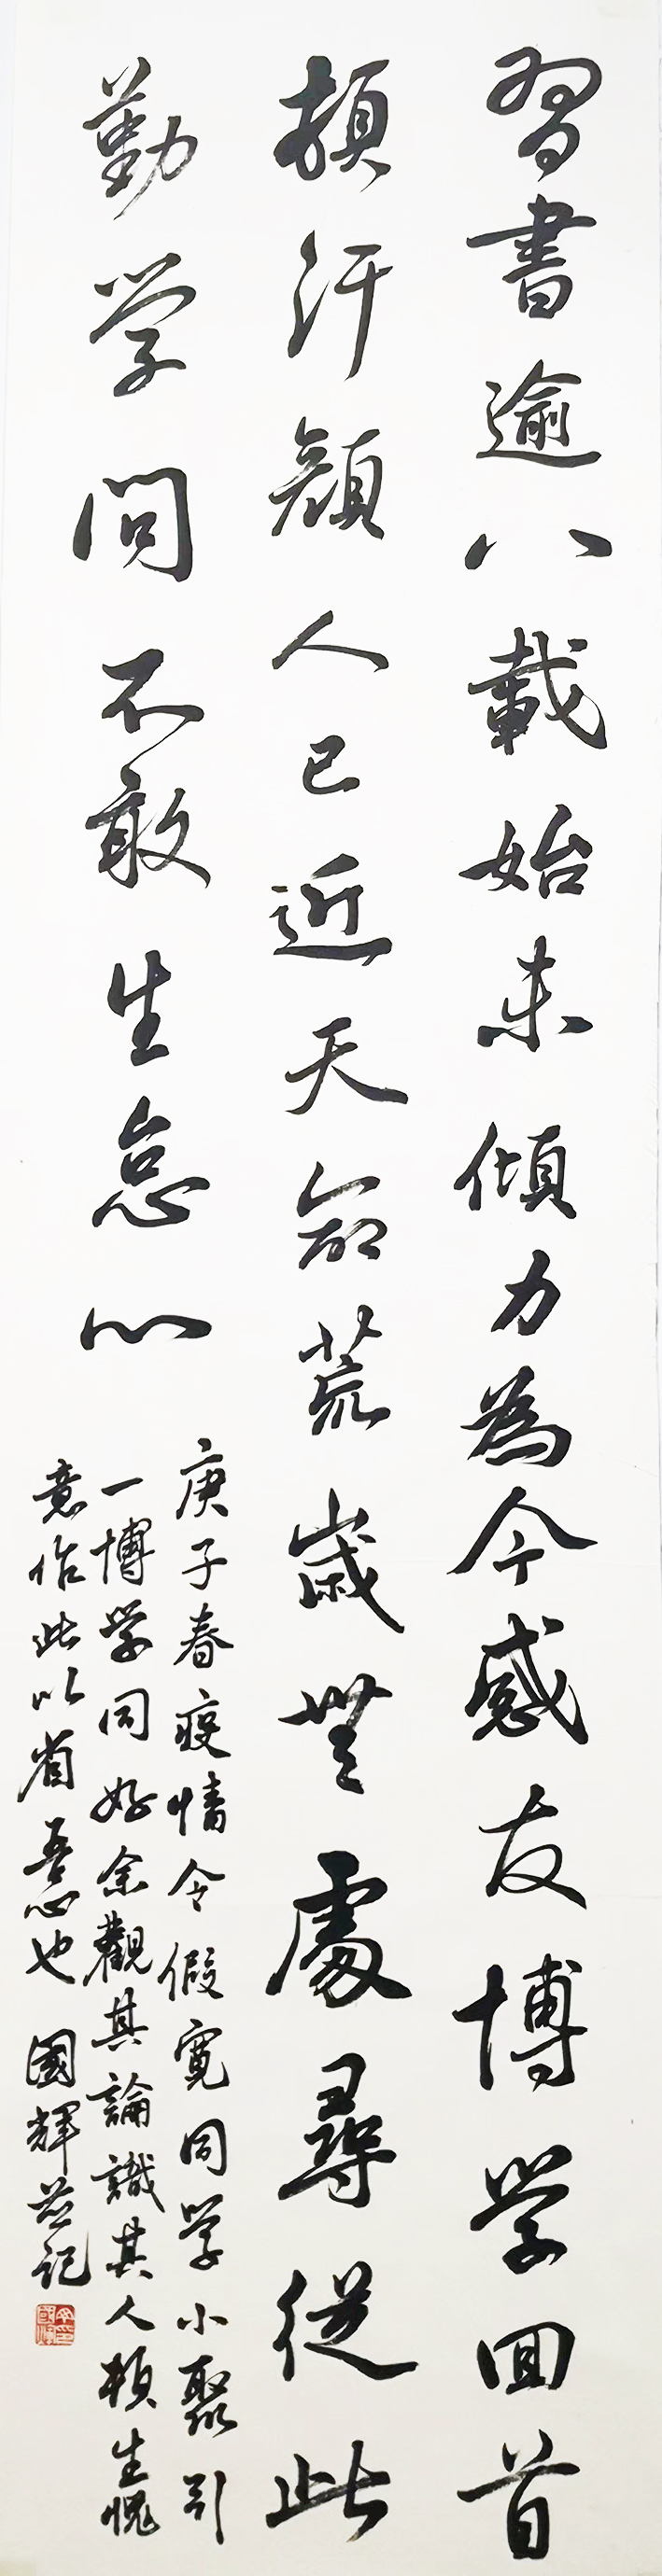 習書逾八載始未傾力為今感友博学回首
頓汗顔人已近天命荒嵗無處尋從此
勤学問不敢生怠心
庚子春疫情令假寛同学小聚引
一博学同好余觀其論識其人頓生愧
意作此以省吾心也 國輝並記